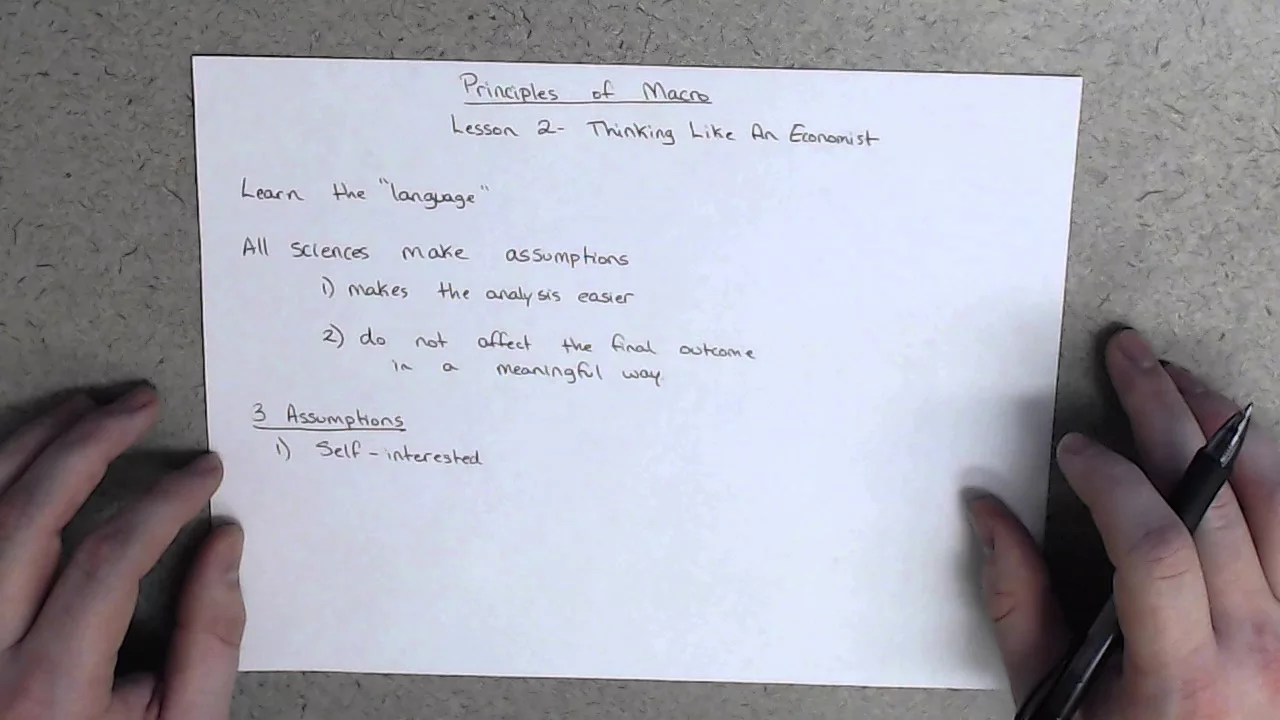 Principles of Macro
Lesson 2- Thinking Like An Economist
Learn the "language"
All sciences make assumptions
1) makes the analysis easier
2) do not affect the final outcome
in a meaningful way.
3 Assumptions
1) Self-interested